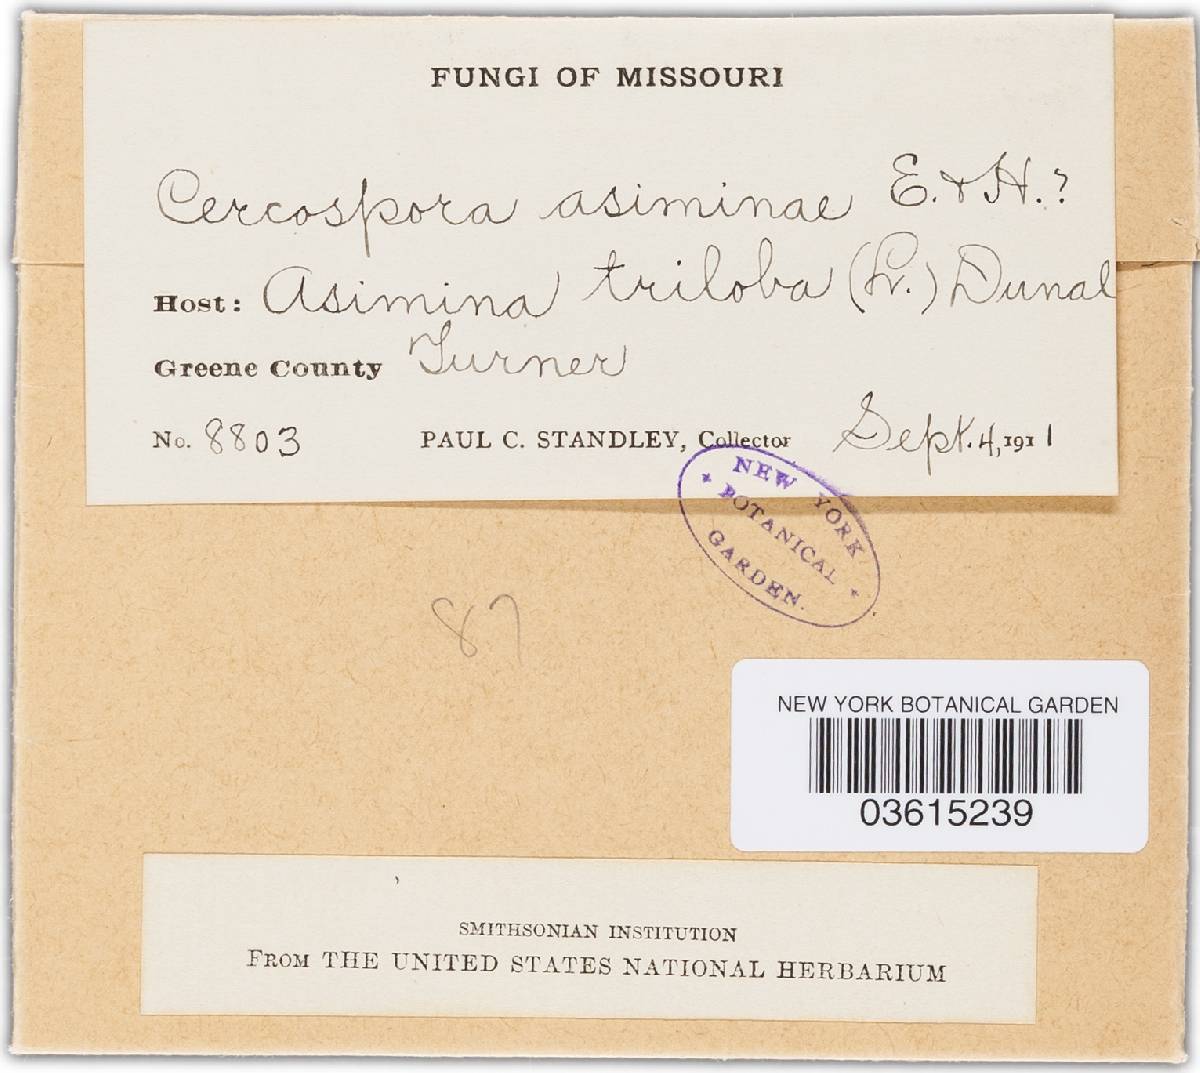 FUNGI OF MISSOURI
Cercospora asiminae E. & H.?
Host: Asimina triloba (L.) Dunal
Greene County Turner
No. 8803 PAUL C. STANDLEY, Collector Sept. 4, 1911
NEW YORK
BOTANICAL
GARDEN.
87
NEW YORK BOTANICAL GARDEN
03615239
SMITHSONIAN INSTITUTION
FROM THE UNITED STATES NATIONAL HERBARIUM